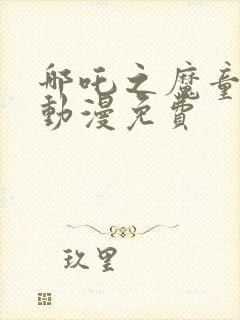 哪吒之魔童
動漫免費
玖里